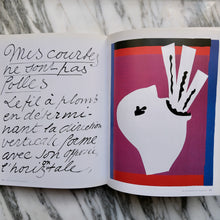 Mes courbes
ne sont pas
folles
Le fil à plomb
en détermi-
nant la direction
verticale forme
avec son opposée
l'horizontale,